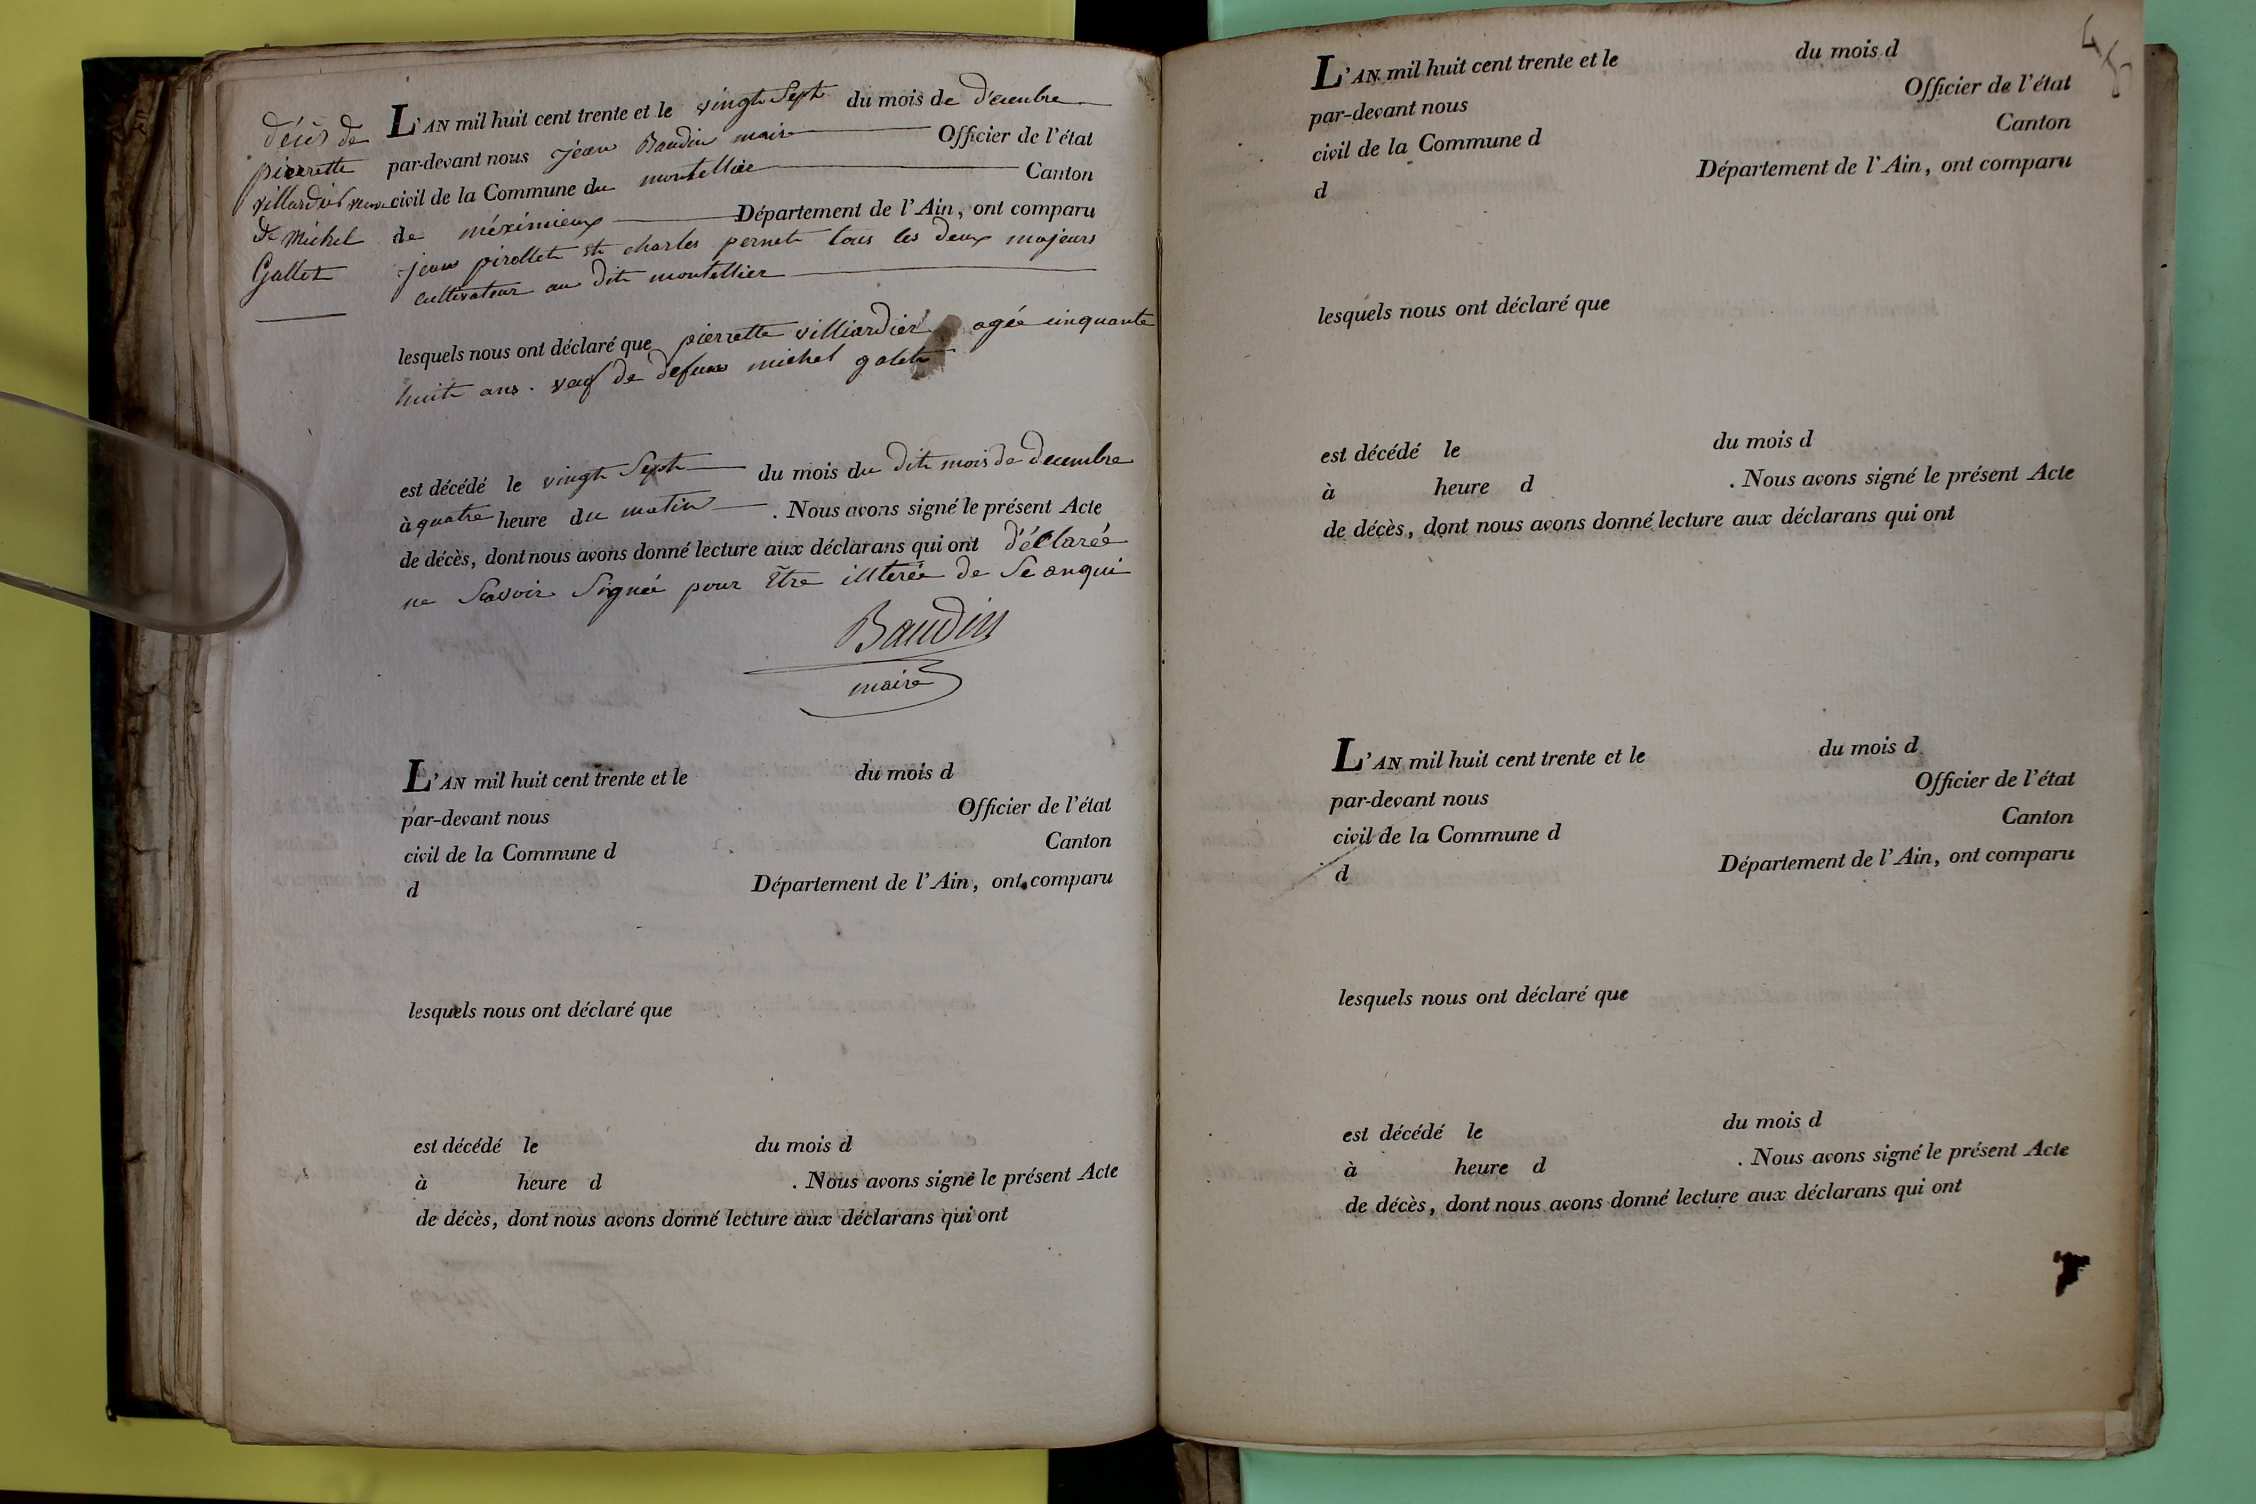 décès de
pierrette
villardier veuve
de Michel
Gallet
L'AN mil huit cent trente et le vingt Sept du mois de décembre
par-devant nous jean Baudin maire Officier de l'état
civil de la Commune du montellier Canton
de méximieux Département de l'Ain, ont comparu
jean pirollet et charles pernet tous les deux majeurs
cultivateur au dit montellier
lesquels nous ont déclaré que pierrette villiardier agée cinquante
huit ans . veuf de defunt michel galet
est décédé le vingt Sept du mois du dit mois de decembre
à quatre heure du matin . Nous avons signé le présent Acte
de décès, dont nous avons donné lecture aux déclarans qui ont déclarée
ne Savoir Signée pour Être illterée de Se enqui
Baudin
maire
L'AN mil huit cent trente et le du mois d
par-devant nous Officier de l'état
civil de la Commune d Canton
d Département de l'Ain, ont comparu
lesquels nous ont déclaré que
est décédé le du mois d
à heure d . Nous avons signé le présent Acte
de décès, dont nous avons donné lecture aux déclarans qui ont
L'AN mil huit cent trente et le du mois d
par-devant nous Officier de l'état
civil de la Commune d Canton
d Département de l'Ain, ont comparu
lesquels nous ont déclaré que
est décédé le du mois d
à heure d . Nous avons signé le présent Acte
de décès, dont nous avons donné lecture aux déclarans qui ont
L'AN mil huit cent trente et le du mois d
par-devant nous Officier de l'état
civil de la Commune d Canton
d Département de l'Ain, ont comparu
lesquels nous ont déclaré que
est décédé le du mois d
à heure d . Nous avons signé le présent Acte
de décès, dont nous avons donné lecture aux déclarans qui ont